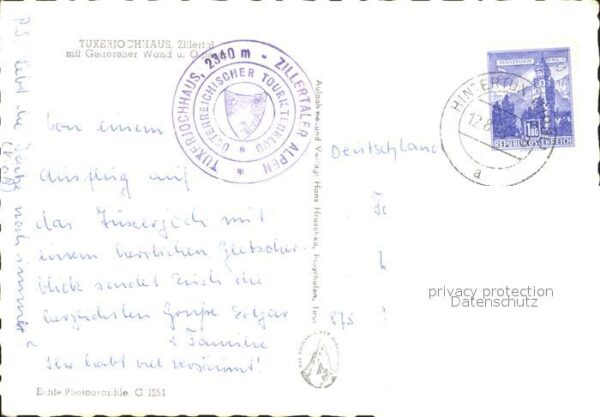 TUXERJOCHHAUS, Zillertal
mit Gefrorener Wand u. O
TUXERJOCHHAUS, 2340 m - ZILLERTALER ALPEN *
ÖSTERREICHISCHER TOURISTENKLUB *
HINTERTUX
12.8
a
1.80
REPUBLIK ÖSTERREICH
Aufnahme und Verlag: Hans Hruschka, Mayrhofen, Tirol
Deutschland
875
Von einem
Ausflug auf
das Tuxerjoch mit
einem herrlichen Gletscher-
blick sendet Euch die
herzlichsten Grüße Edgar
+ Familie
Ihr habt viel versäumt!
PS lebt die noch immer?
Echte Photographie G 1251
privacy protection
Datenschutz